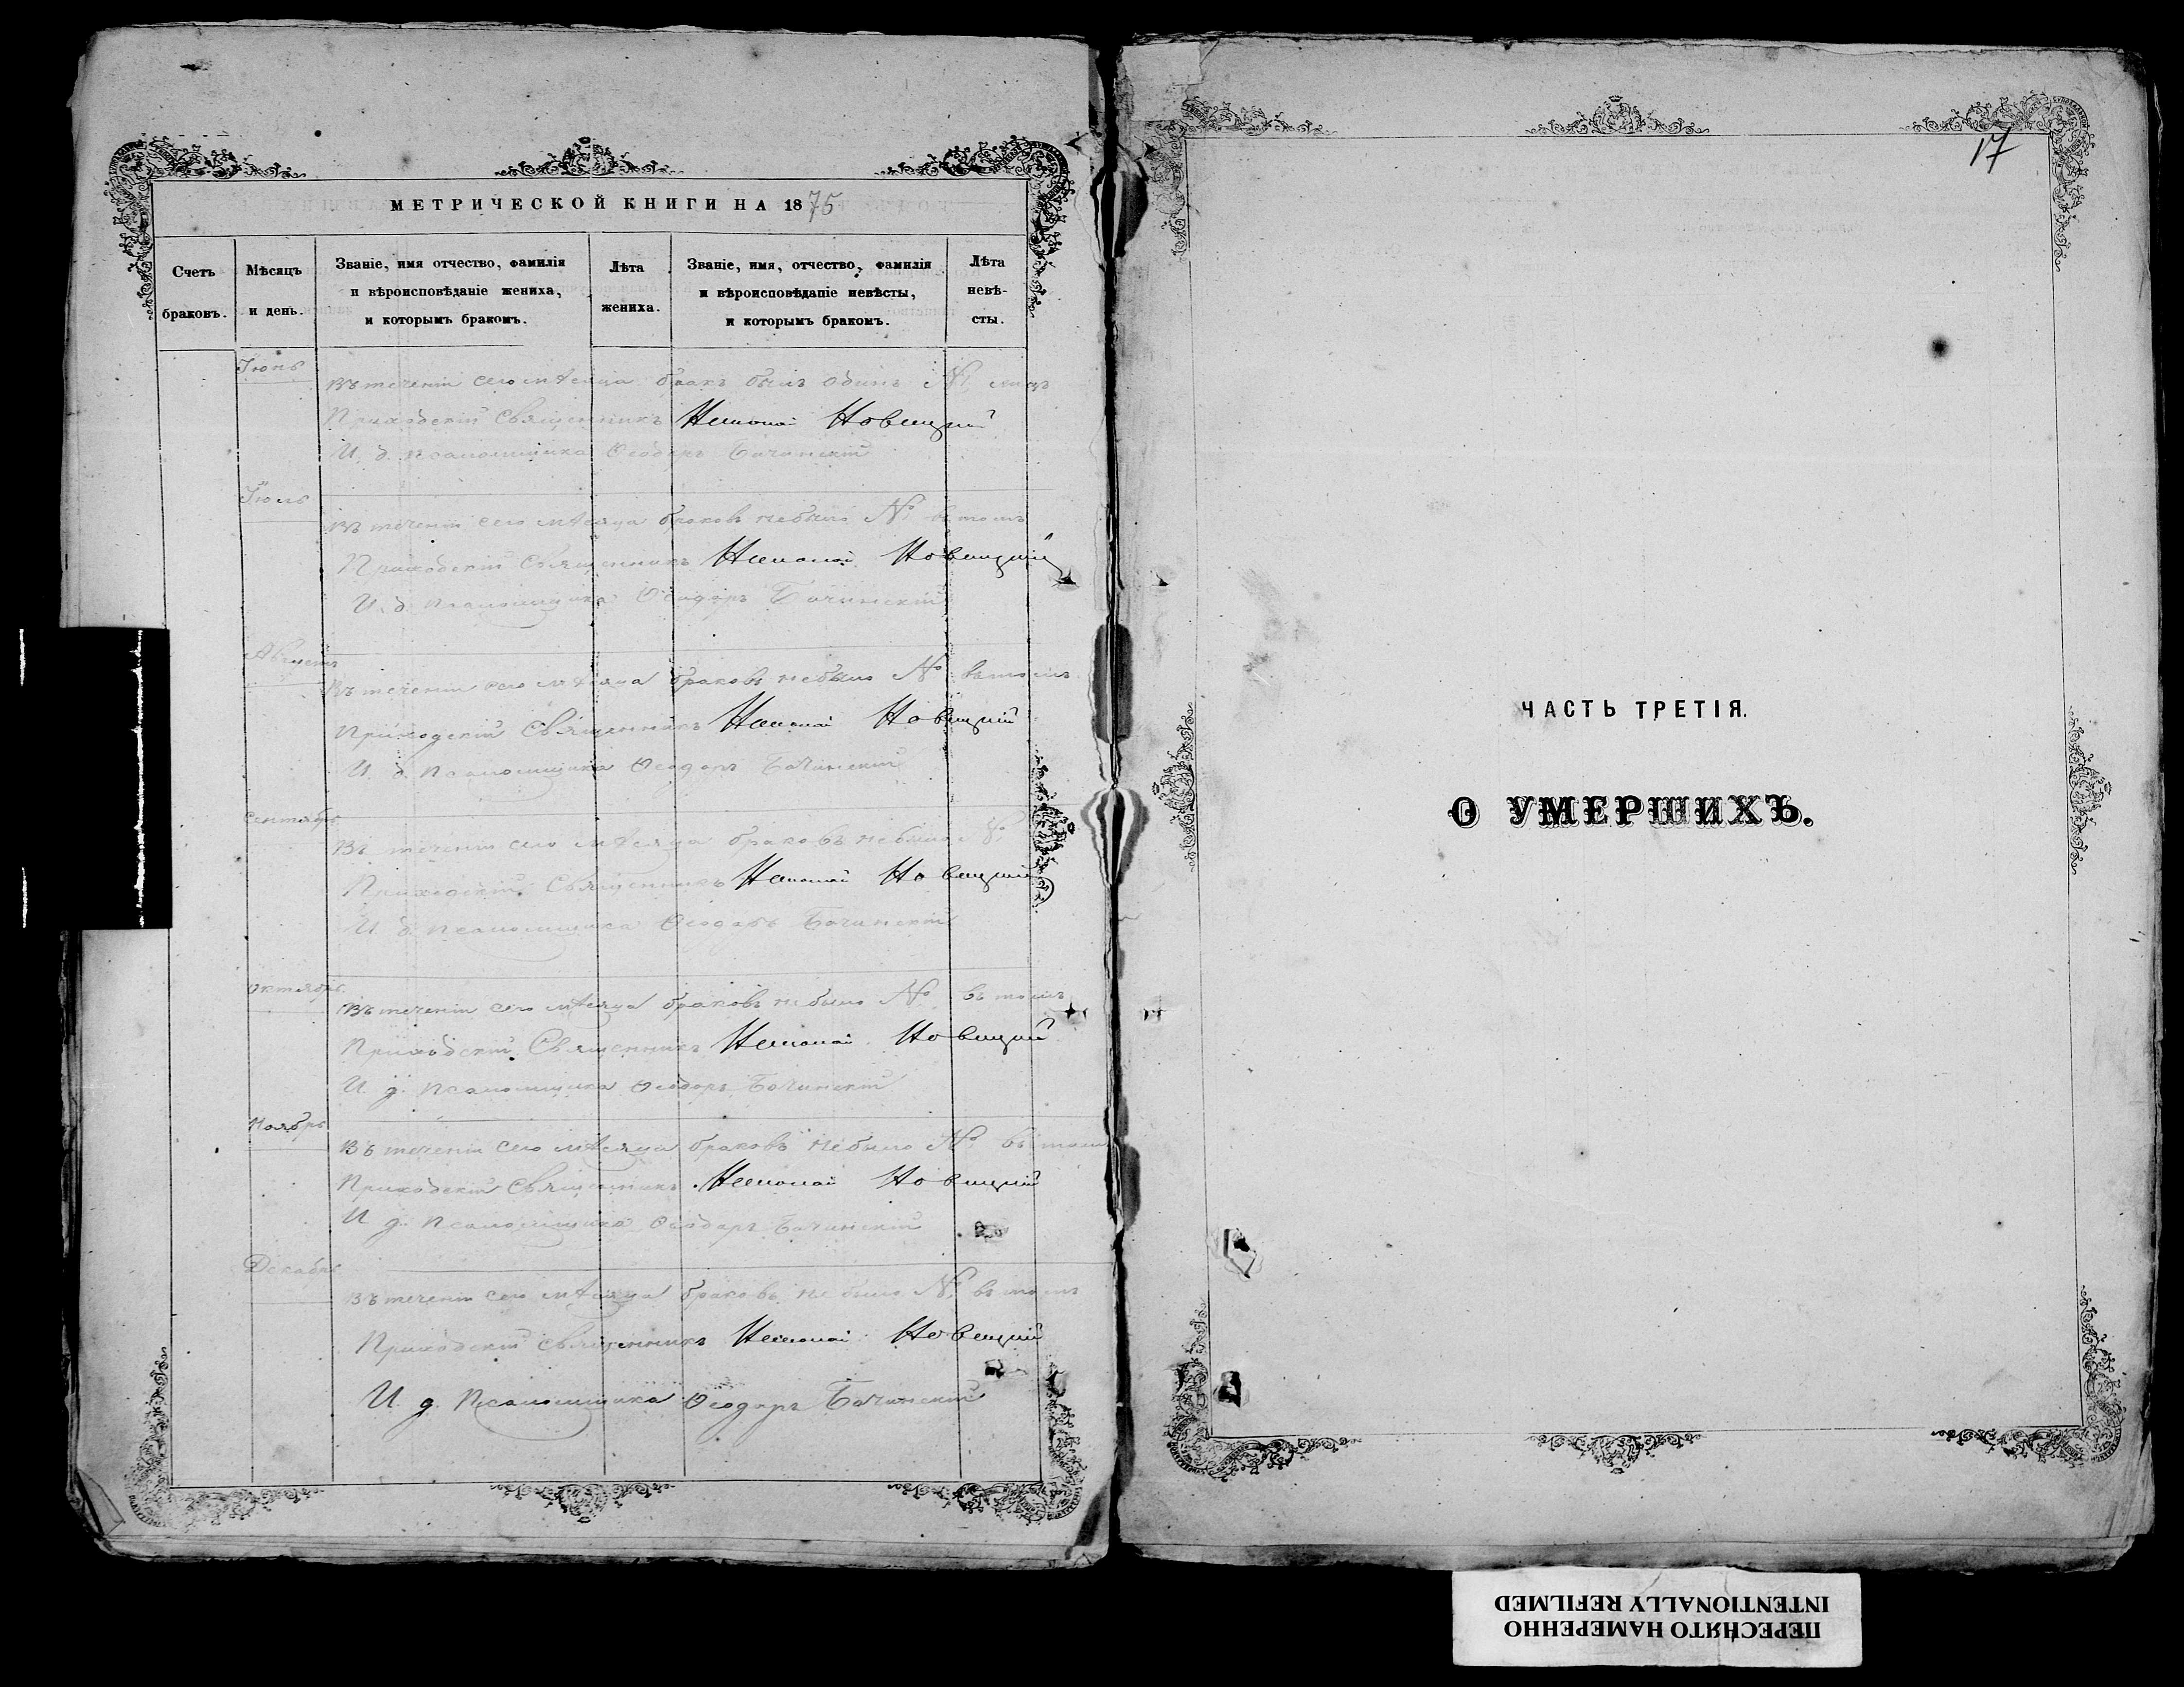 МЕТРИЧЕСКОЙ КНИГИ НА 1875
Счетъ браковъ.
Мѣсяцъ и день.
Званіе, имя отчество, фамилія и вѣроисповѣданіе жениха, и которымъ бракомъ.
Лѣта жениха.
Званіе, имя, отчество, фамилія и вѣроисповѣданіе невѣсты, и которымъ бракомъ.
Лѣта невѣ-сты.
Іюнь
Въ теченіи сего мѣсяца бракъ былъ одинъ №
Приходскій Священникъ Николай Новицкій
И. д. псаломщика Ѳеодоръ Бачинскій
Іюль
Въ теченіи сего мѣсяца браковъ небыло № въ томъ
Приходскій Священникъ Николай Новицкій
И. д. псаломщика Ѳеодоръ Бачинскій
Августъ
Въ теченіи сего мѣсяца браковъ небыло № въ томъ
Приходскій Священникъ Николай Новицкій
И. д. псаломщика Ѳеодоръ Бачинскій
Сентябрь
Въ теченіи сего мѣсяца браковъ небыло №
Приходскій Священникъ Николай Новицкій
И. д. псаломщика Ѳеодоръ Бачинскій
Октябрь
Въ теченіи сего мѣсяца браковъ небыло № въ томъ
Приходскій Священникъ Николай Новицкій
И. д. псаломщика Ѳеодоръ Бачинскій
Ноябрь
Въ теченіи сего мѣсяца браковъ небыло № въ томъ
Приходскій Священникъ Николай Новицкій
И д. псаломщика Ѳеодоръ Бачинскій
Декабрь
Въ теченіи сего мѣсяца браковъ не было № въ томъ
Приходскій Священникъ Николай Новицкій
И. д. Псаломщика Ѳеодоръ Бачинскій
17
ЧАСТЬ ТРЕТІЯ.
О УМЕРШИХЪ.
ПЕРЕСНЯТО НАМЕРЕННО
INTENTIONALLY REFILMED